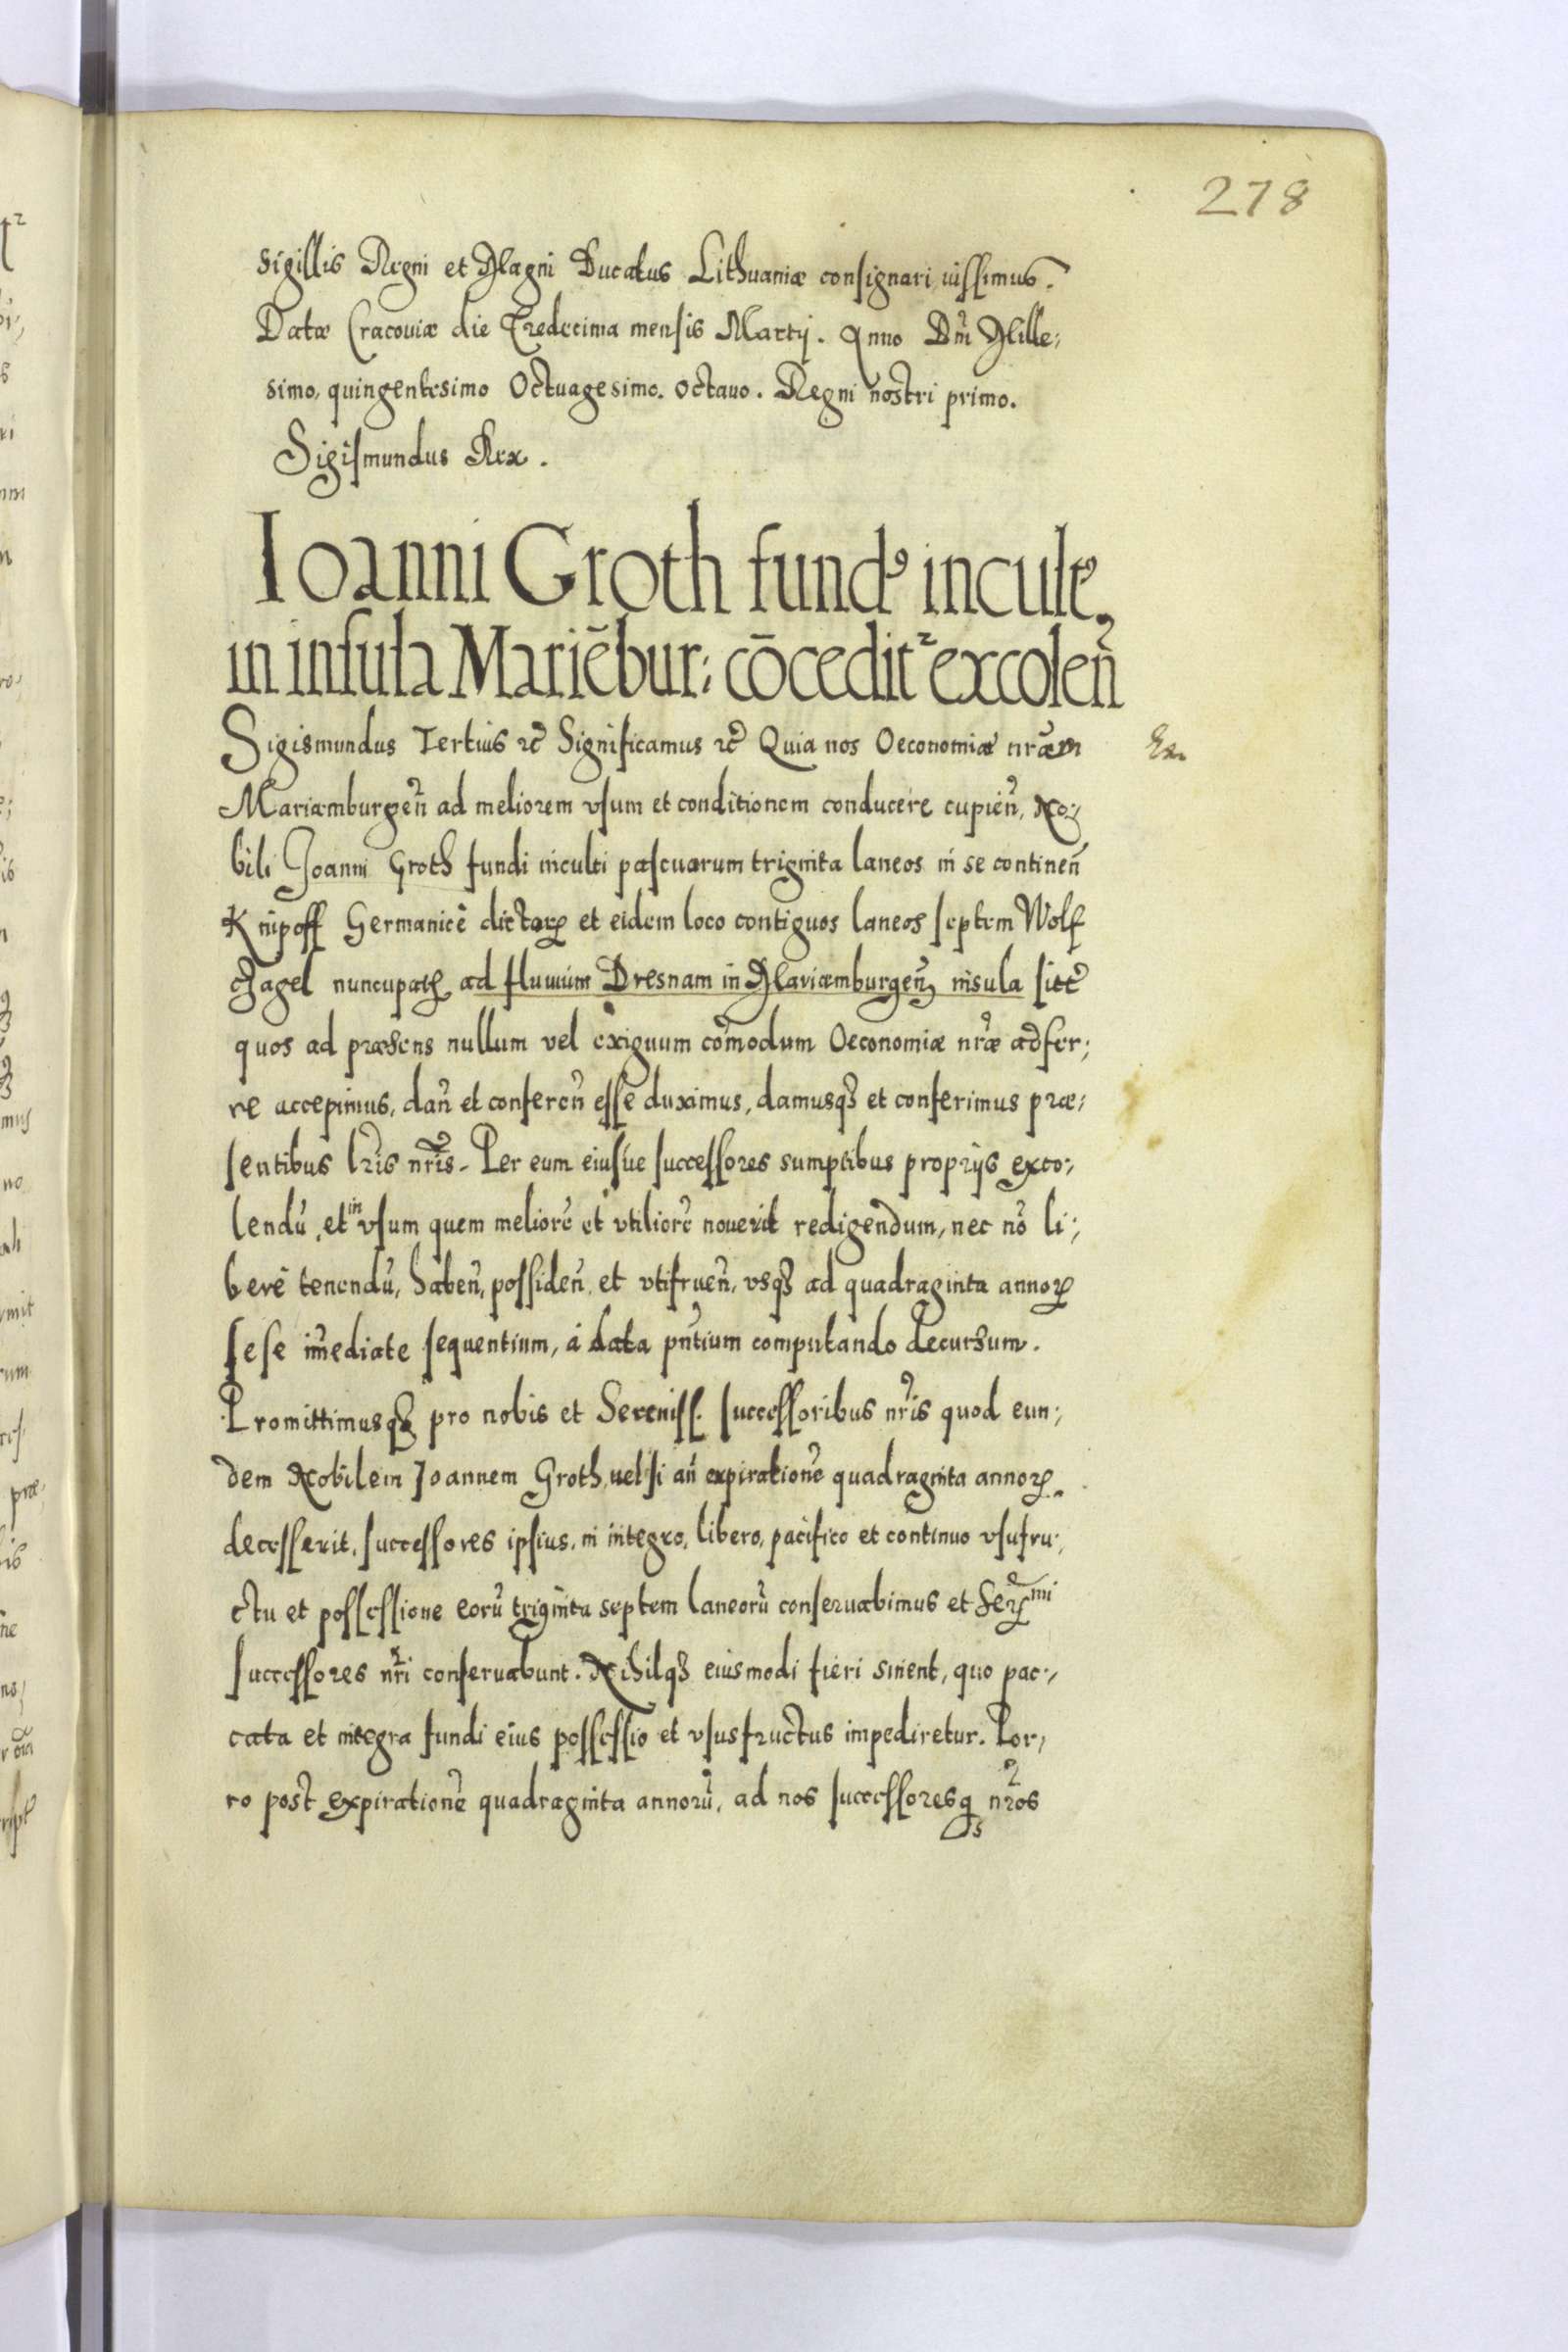 278
sigillis Regni et Magni Ducatus Lithuaniæ consignari iussimus.
Datæ Cracouiæ die Tredecima mensis Martij. Anno Dñi Mille;
simo, quingentesimo Octuagesimo. octauo. Regni nostri primo.
Sigismundus Rex.
Ioanni Groth fundꝰ incultꝰ
in insula Mariēbur: cōcedit᷑ excoleñ
Sigismundus Tertius ꝛc̃ Significamus ꝛc̃ Quia nos Oeconomiæ nrãm
Mariæmburgeñ ad meliorem vsum et conditionem conducere cupieñ, No;
bili Joanni Groth fundi inculti pascuarum triginta laneos in se contineñ
Knipoff Germanicè dictarꝝ et eidem loco contiguos laneos septem Wolf
Zagel nuncupatꝝ ad fluuium Dresnam in Mariæmburgeñ insula sitt̃
quos ad præsens nullum vel exiguum cõmodum Oeconomiæ nræ̃ adfer;
re accepimus, dañ et confereñ esse duximus, damusqꝫ et conferimus præ;
sentibus lrĩs nrĩs. Per eum eiusue successores sumptibus proprijs exco;
lendũ, et in vsum quem meliorẽ et vtiliorẽ nouerit redigendum, nec nõ li;
berè tenendũ, habeñ, possideñ et vtifrueñ, vsqꝫ ad quadraginta annorꝝ
sese im̃ediate sequentium, à data pñtium computando Decursum.
Promittimusqꝫ pro nobis et Sereniss. successoribus nrĩs quod eun;
dem Nobilem Joannem Groth, uel si añ expirationẽ quadraginta annorꝝ
decesserit, successores ipsius, in integro, libero, pacifico et continuo vsufru;
ctu et possessione eorũ triginta septem laneorũ conseruabimus et Serꝝmi
successores nrĩ conseruabunt. Nihilqꝫ eiusmodi fieri sinent, quo pac;
cata et integra fundi eius possessio et vsusfructus impediretur. Por;
ro post expirationẽ quadraginta annorũ, ad nos successoresqꝫ nrõs